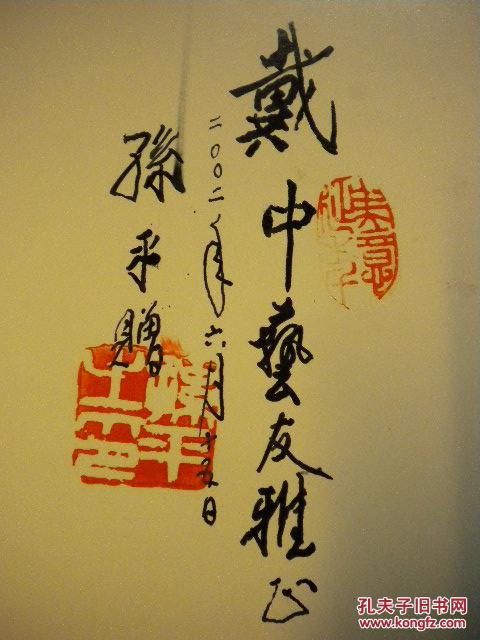 戴中藝友雅正
二〇〇二年六月十五日
孫平贈
孫平
孔夫子旧书网
www.kongfz.com